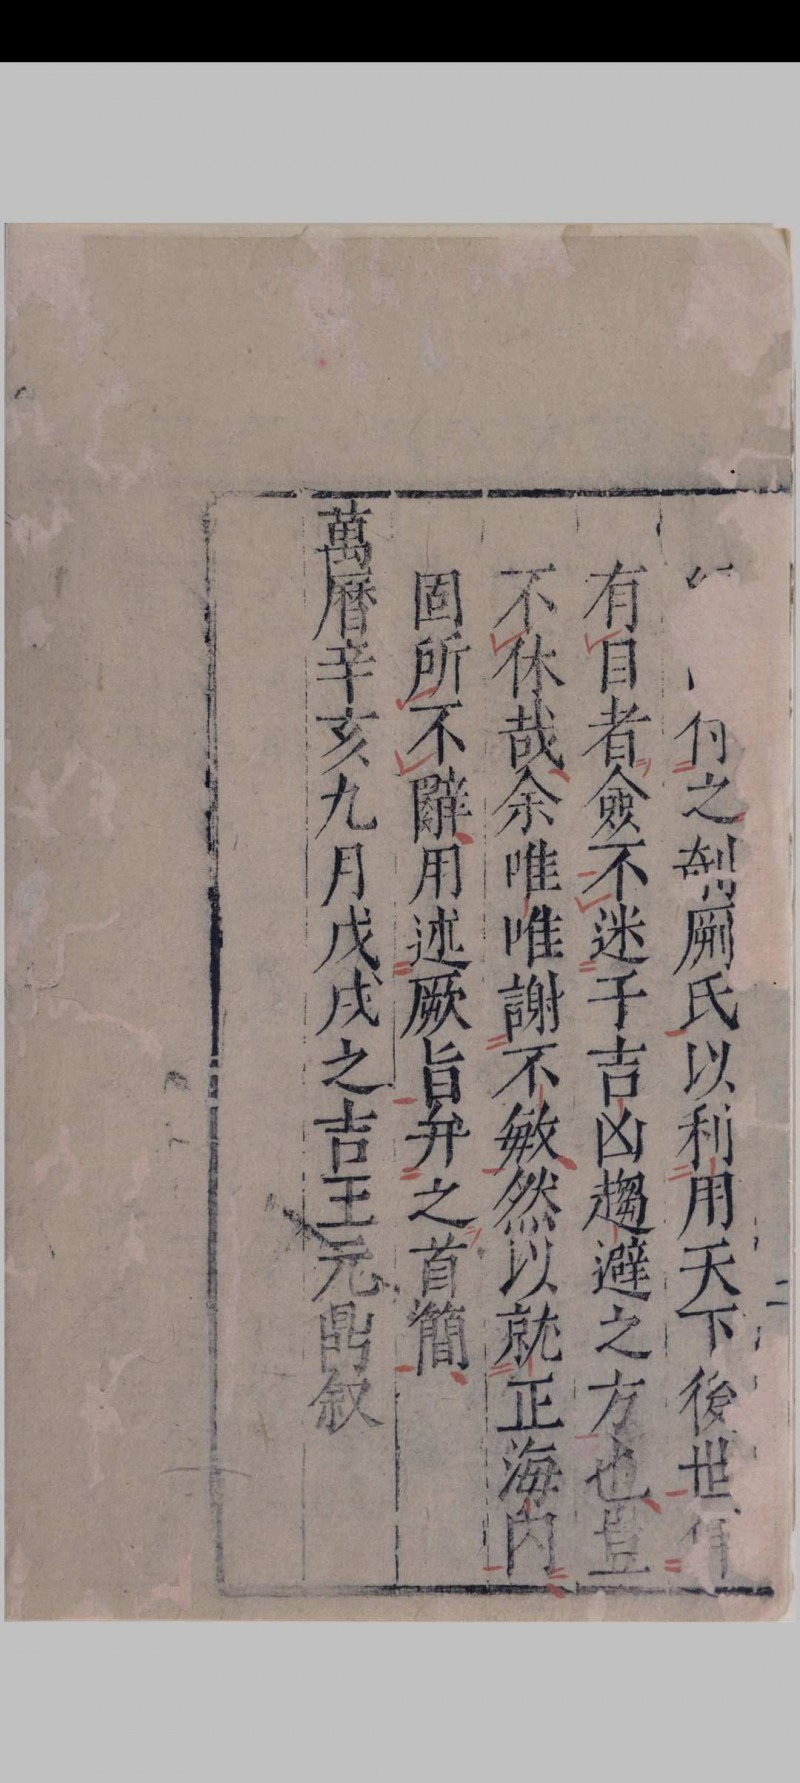 付之剞劂氏以利用天下後世俾
有目者僉不迷于吉凶趨避之方也豈
不休哉余唯唯謝不敏然以就正海内
固所不辭用述厥旨弁之首簡
萬曆辛亥九月戊戌之吉王元鼎叙
二